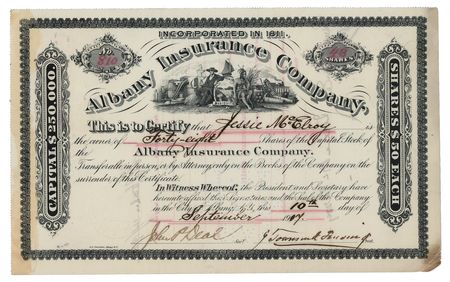 INCORPORATED IN 1811.
No. 810
48 SHARES
Albany Insurance Company.
CAPITAL $250,000.
SHARES $50 EACH
This is to Certify that Jessie McElroy is
the owner of Forty-eight Shares of the Capital Stock of
the Albany Insurance Company.
Transferable in person, or by Attorney only on the Books of the Company on the
surrender of this Certificate.
In Witness Whereof, the President and Secretary have
hereunto affixed their Signatures and the Seal of the Company
in the City of Albany N.Y. this 10th day of
September 1907.
John P. Deal Sec'y J. Townsend Pres.